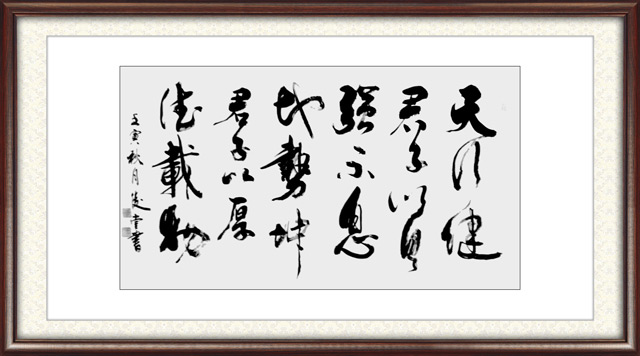 天行健
君子以自
强不息
地勢坤
君子以厚
德載物
壬寅秋月書